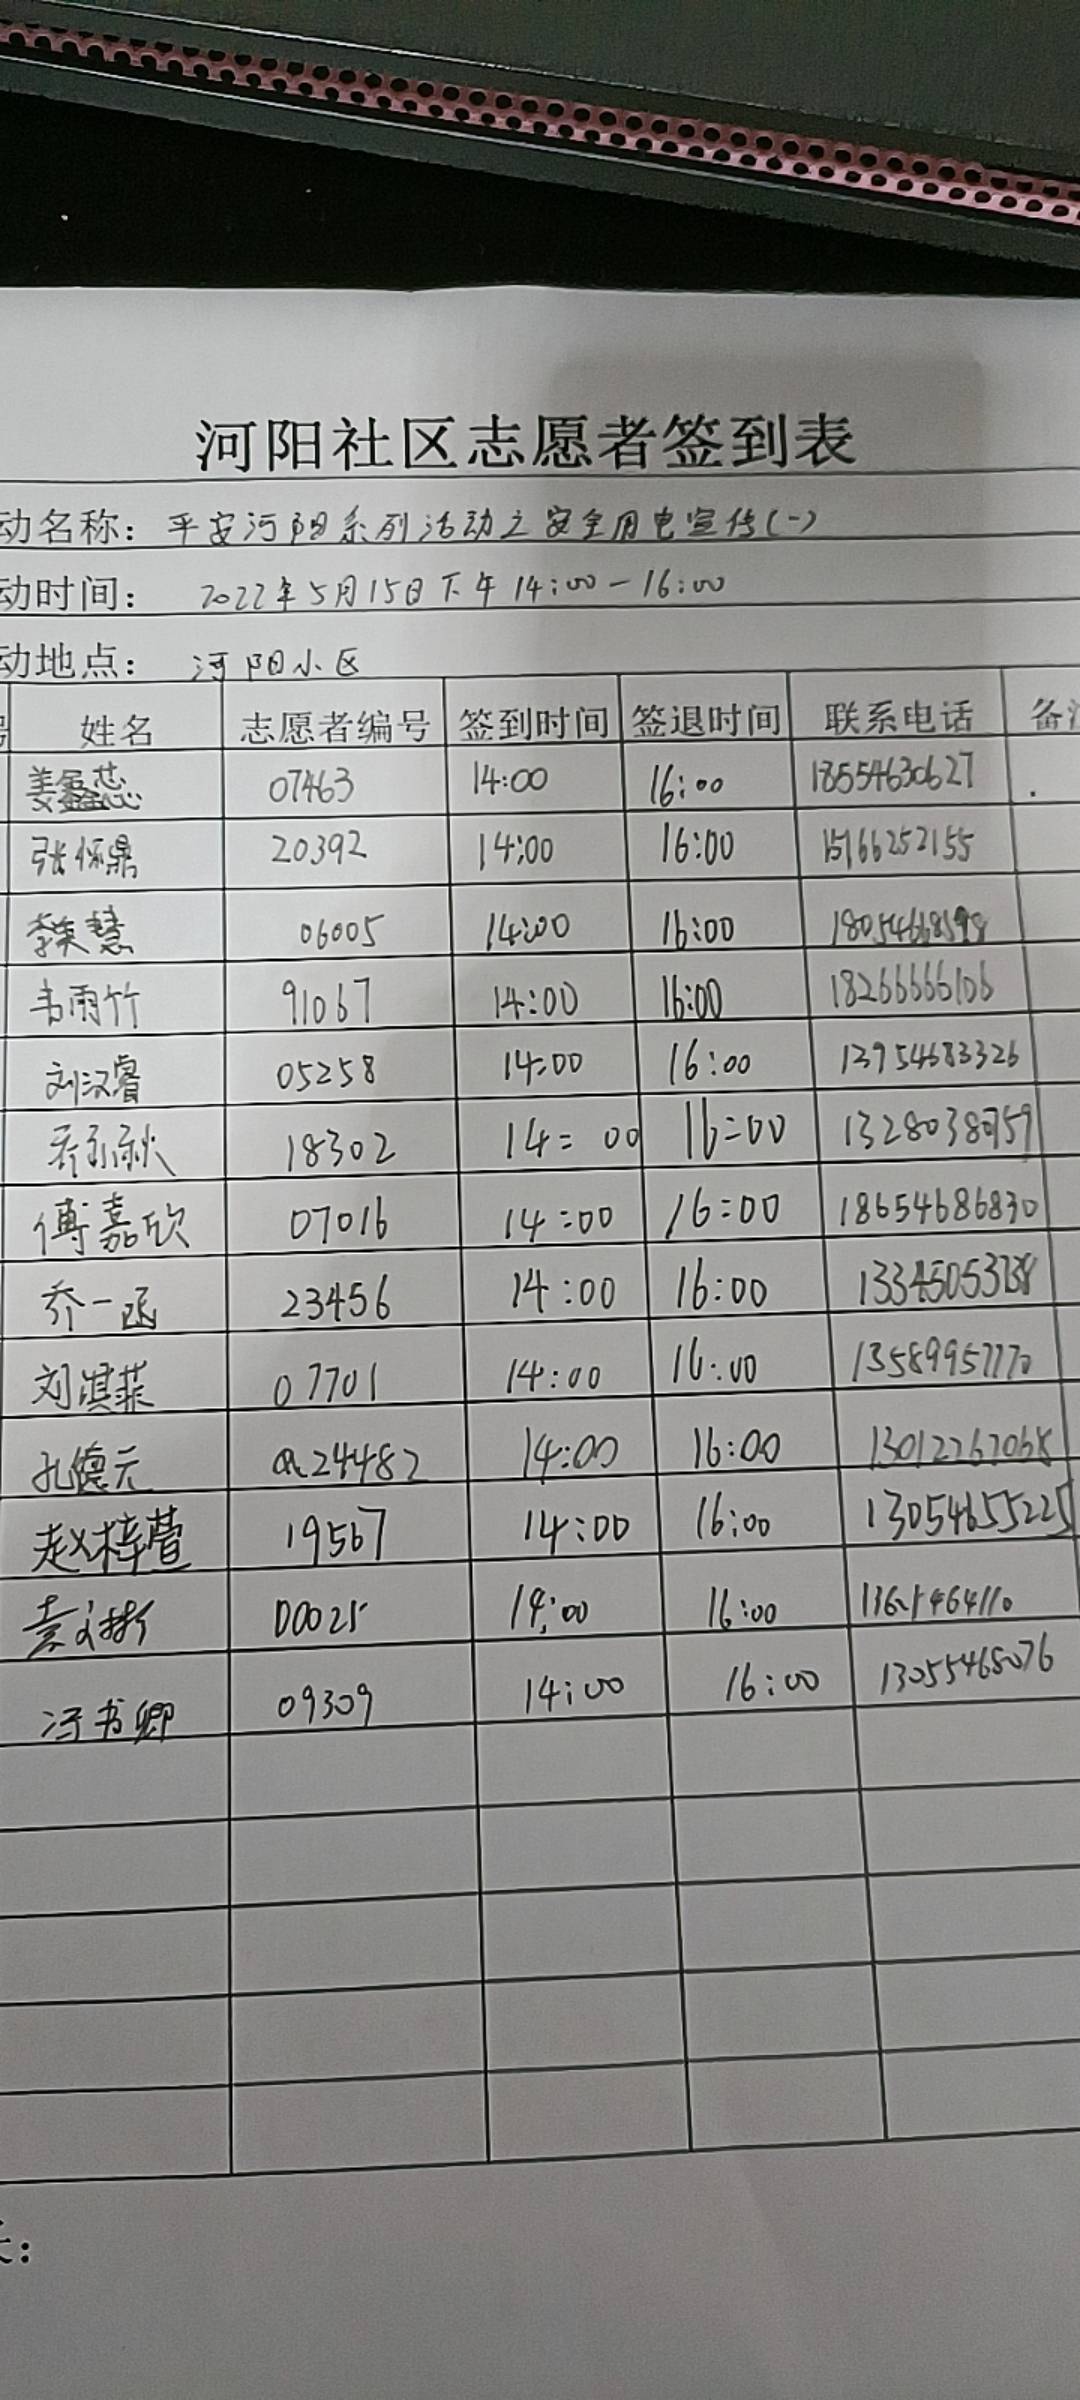 河阳社区志愿者签到表
动名称: 平安河阳系列活动之安全用电宣传(一)
动时间: 2022年5月15日下午14:00-16:00
动地点: 河阳小区
姓名 志愿者编号 签到时间 签退时间 联系电话 备
姜鑫蕊 07463 14:00 16:00 18554630627
张怀鼎 20392 14:00 16:00 15166252155
李奕慧 06005 14:00 16:00
韦雨竹 91067 14:00 16:00 18266666106
刘汉睿 05258 14:00 16:00 13954683326
18302 14:00 16:00
傅嘉欣 07016 14:00 16:00 18654686830
乔一函 23456 14:00 16:00
刘淇菲 07701 14:00 16:00 13589957770
孔德元 24482 14:00 16:00
赵梓萱 19567 14:00 16:00 13054655225
袁 14:00 16:00
冯书卿 09309 14:00 16:00 13055465076
长: